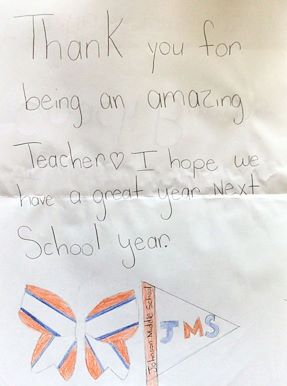 Thank you for
being an amazing
Teacher♡ I hope we
have a great year Next
School year.
JMS